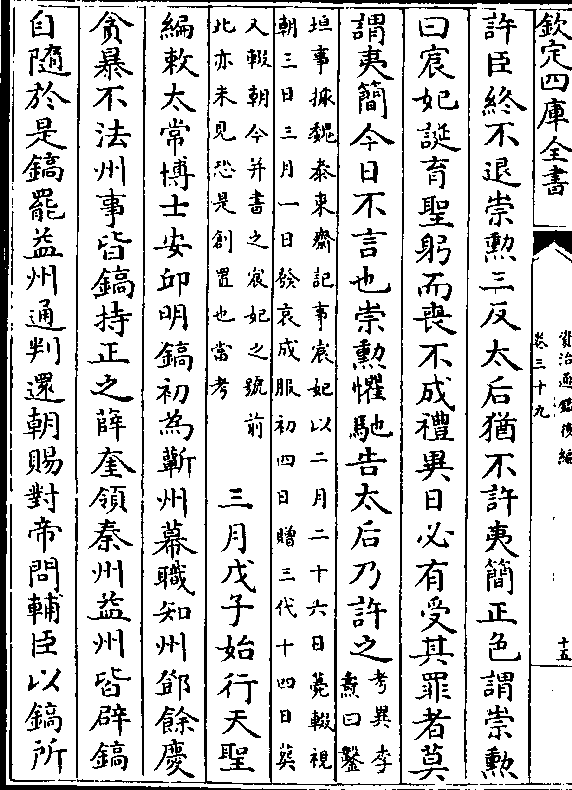 欽定四庫全書
資治通鑑後編
卷三十九
十五
許臣終不退崇勲三反太后猶不許夷簡正色謂崇勲
曰宸妃誕育聖躬而喪不成禮異日必有受其罪者莫
謂夷簡今日不言也崇勲懼馳告太后乃許之考異李
燾曰鑿
垣事據魏泰東齋記事宸妃以二月二十六日薨輟視
朝三日三月一日發哀成服初四日贈三代十四日葬
又輟朝今并書之宸妃之號前
此亦未見恐是創置也當考
三月戊子始行天聖
編敕太常博士安邱明鎬初為蘄州幕職知州鄧餘慶
貪暴不法州事皆鎬持正之薛奎領秦州益州皆辟鎬
自隨於是鎬罷益州通判還朝賜對帝問輔臣以鎬所